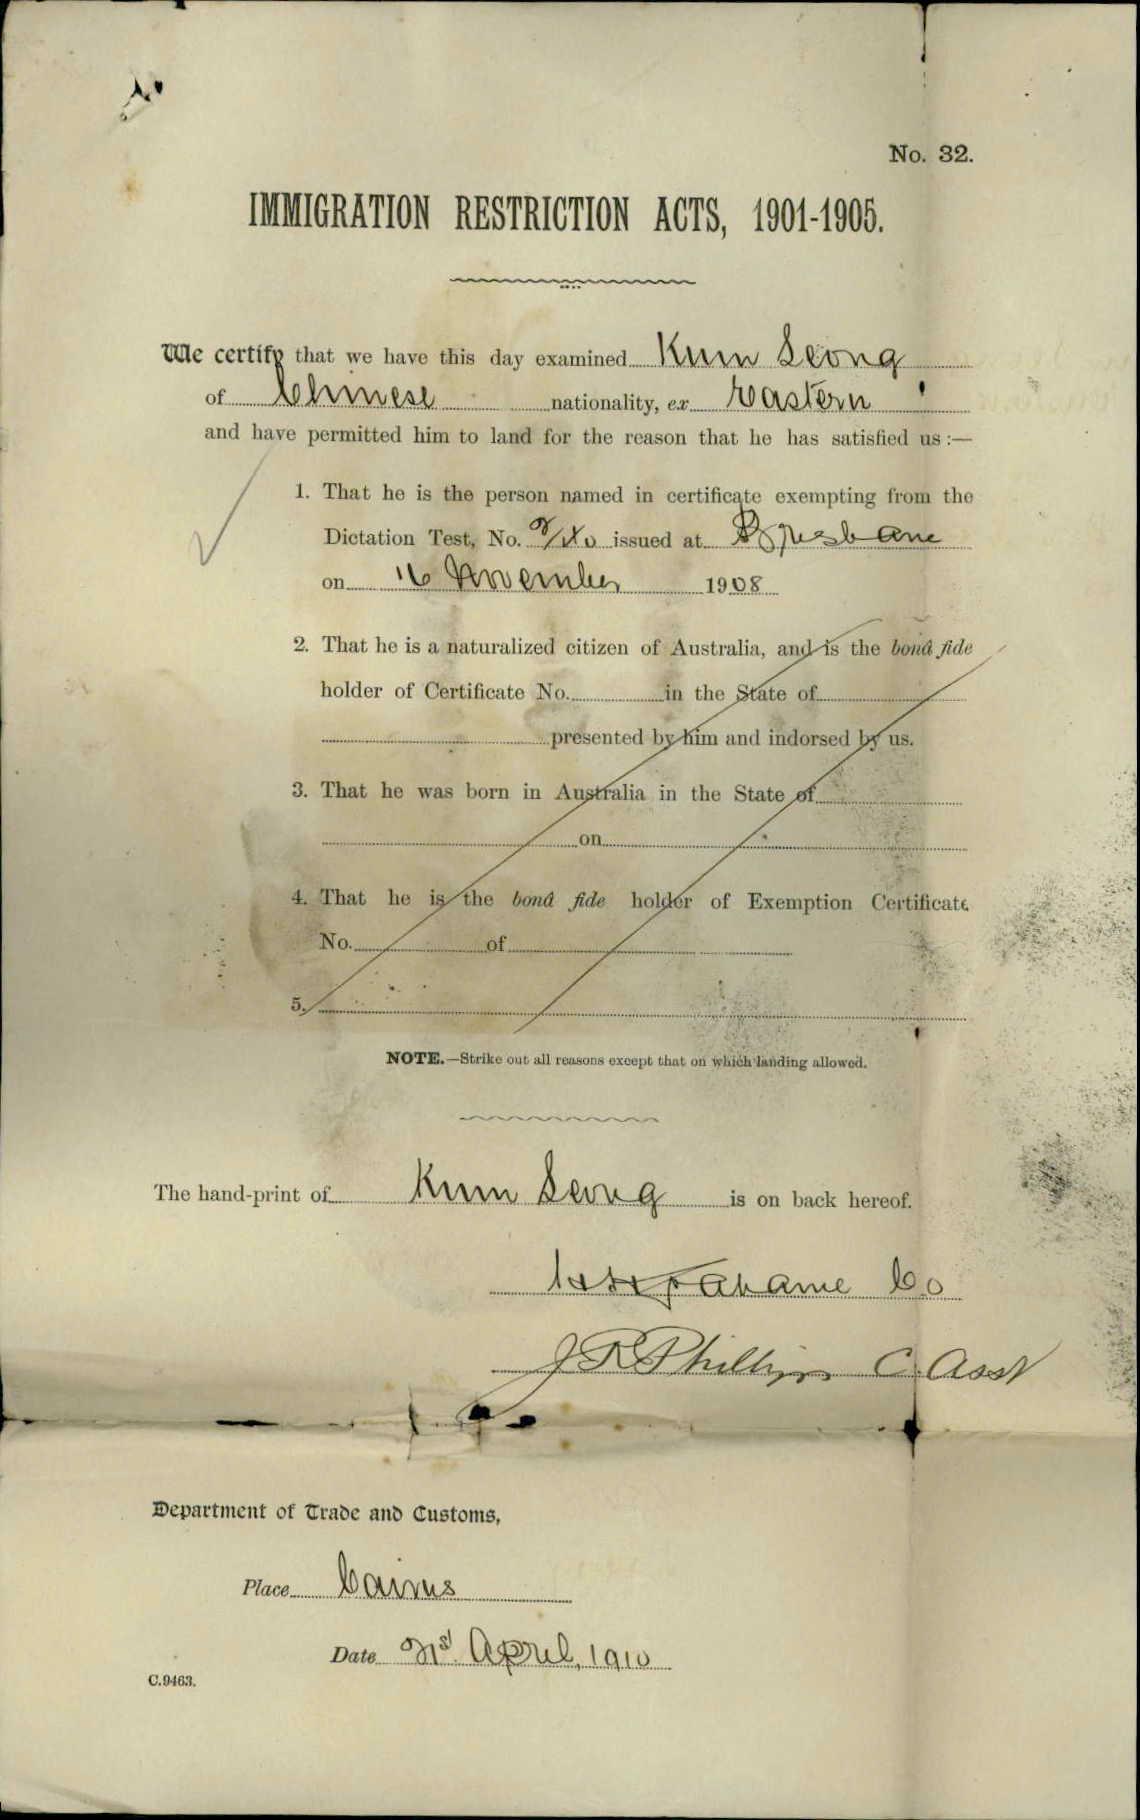 No. 32.
IMMIGRATION RESTRICTION ACTS, 1901-1905.
We certify that we have this day examined Kum Leong
of Chinese nationality, ex Eastern
and have permitted him to land for the reason that he has satisfied us :—
1. That he is the person named in certificate exempting from the
Dictation Test, No. issued at Brisbane
on 16 November 1908
2. That he is a naturalized citizen of Australia, and is the bonâ fide
holder of Certificate No. in the State of
presented by him and indorsed by us.
3. That he was born in Australia in the State of
on
4. That he is the bonâ fide holder of Exemption Certificate
No. of
5.
NOTE.—Strike out all reasons except that on which landing allowed.
The hand-print of Kum Leong is on back hereof.
Co
J R Phillips C. Asst
Department of Trade and Customs,
Place Cairns
Date 21st April, 1910
C.9463.